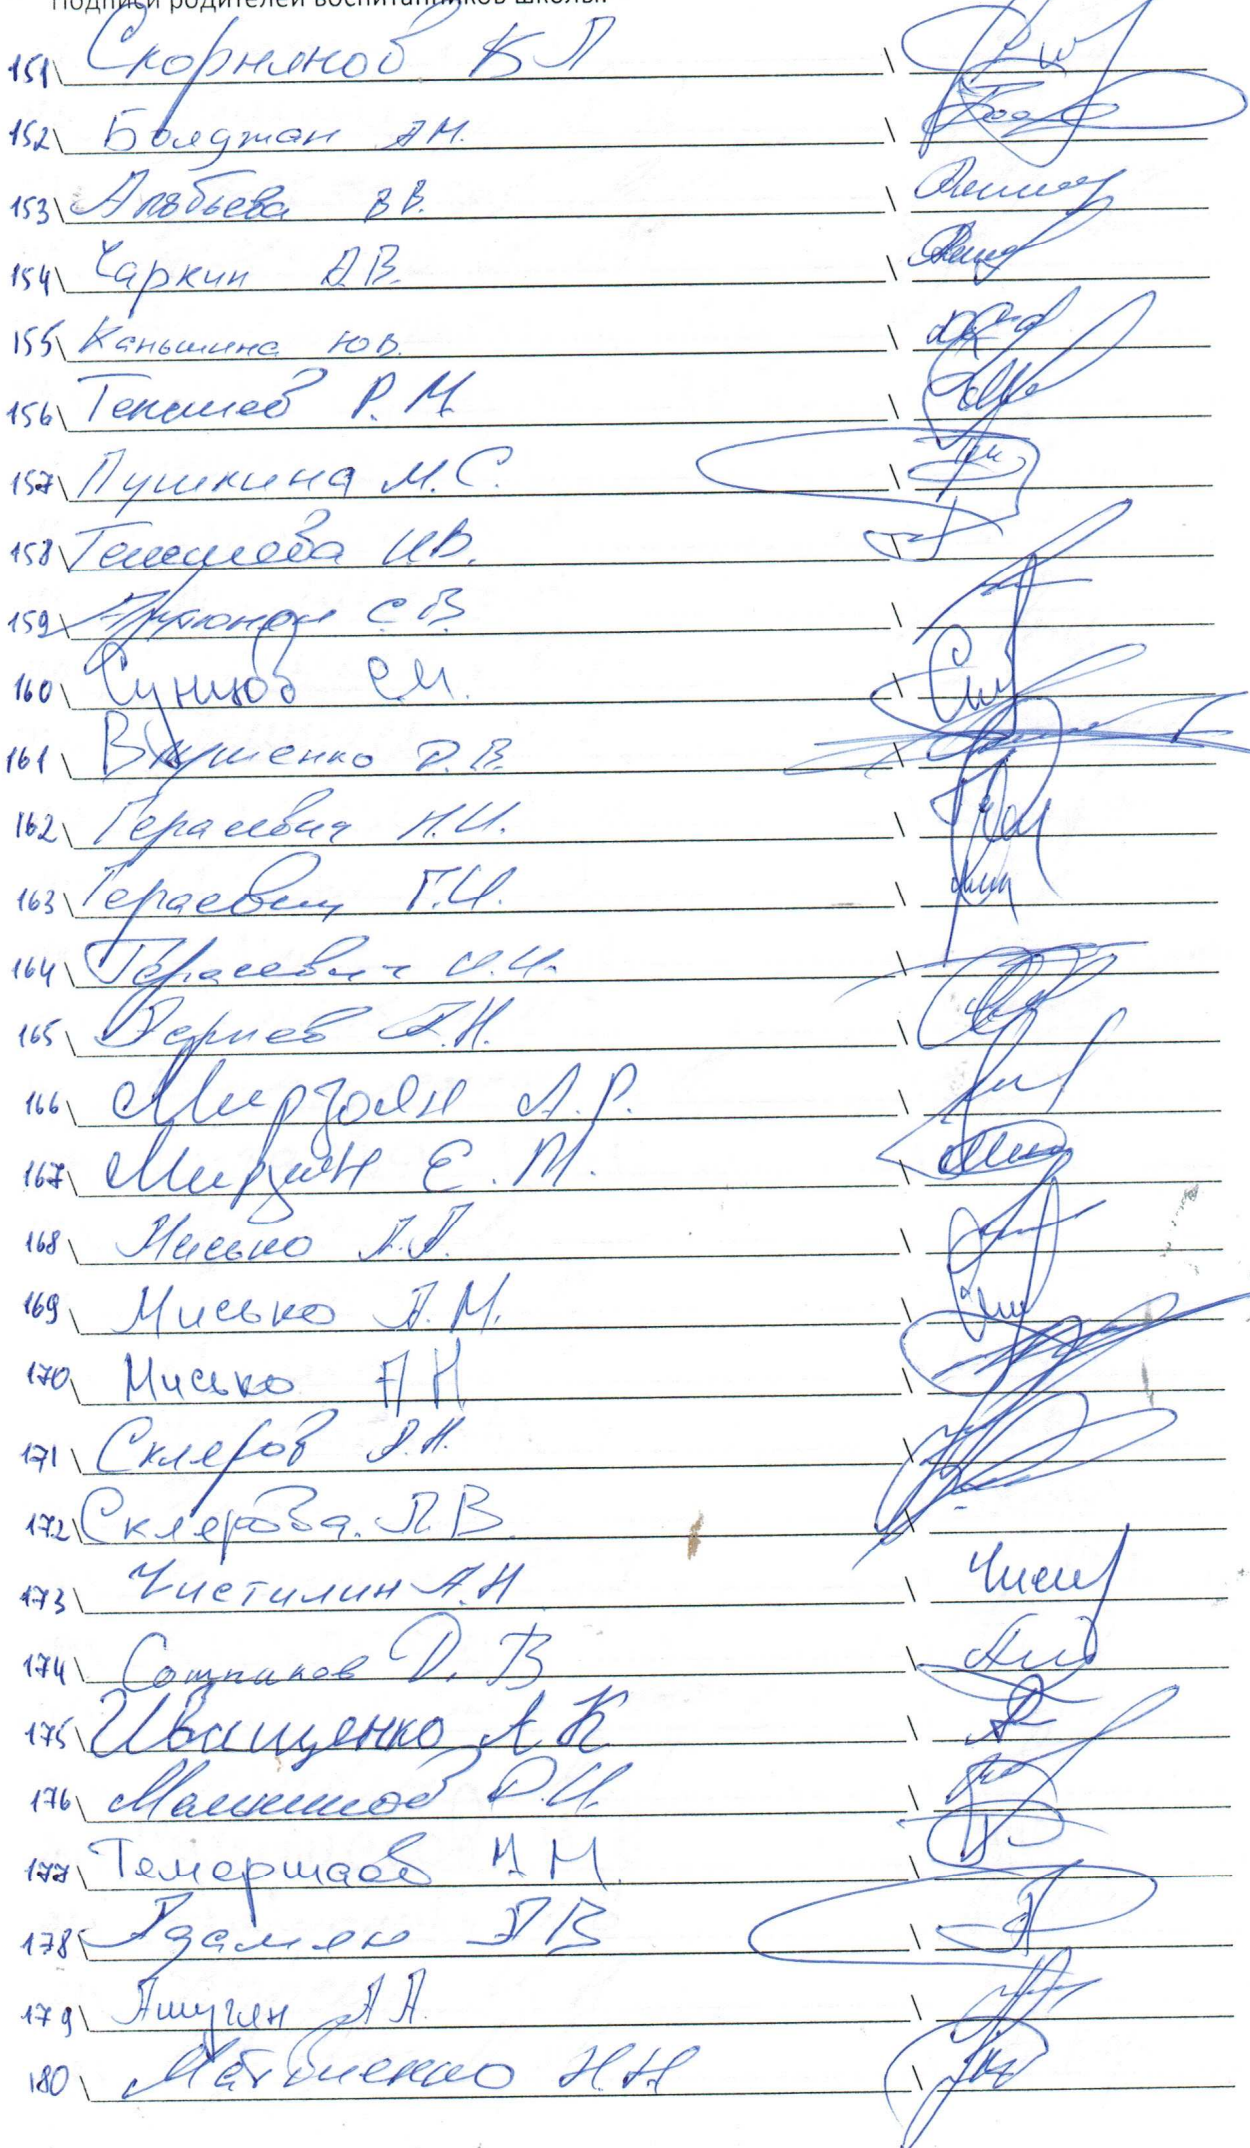 Подписи родителей воспитанников школы:
151\ Скорняков К П \
152\ Бояджан А.Н. \
153\ Алябьева В В. \
154\ Чаркин А.В. \
155\ Каньшина Ю.В. \
156\ Текишев Р. М. \
157\ Пушкина М. С. \
158\ И.В. \
159\ С В. \
160\ Сунцов С.М. \
161\ Д. В. \
162\ Герасевич Н.И. \
163\ Герасевич Г.И. \
164\ Герасевич И.И. \
165\ А.Н. \
166\ Мирзоян А.Р. \
167\ Мирзян Е. М. \
168\ Мисько А.А. \
169\ Мисько А.М. \
170\ Мисько А Н \
171\ Скляров А.Н. \
172\ Склярова. Л.В. \
173\ Чистилин А.Н \
174\ Сотников Д. В \
175\ Иващенко А К \
176\ Д.И. \
177\ Темершаев М М. \
178\ Адамян А В \
179\ Ашугян А А. \
180\ Матвиенко Н.Н \